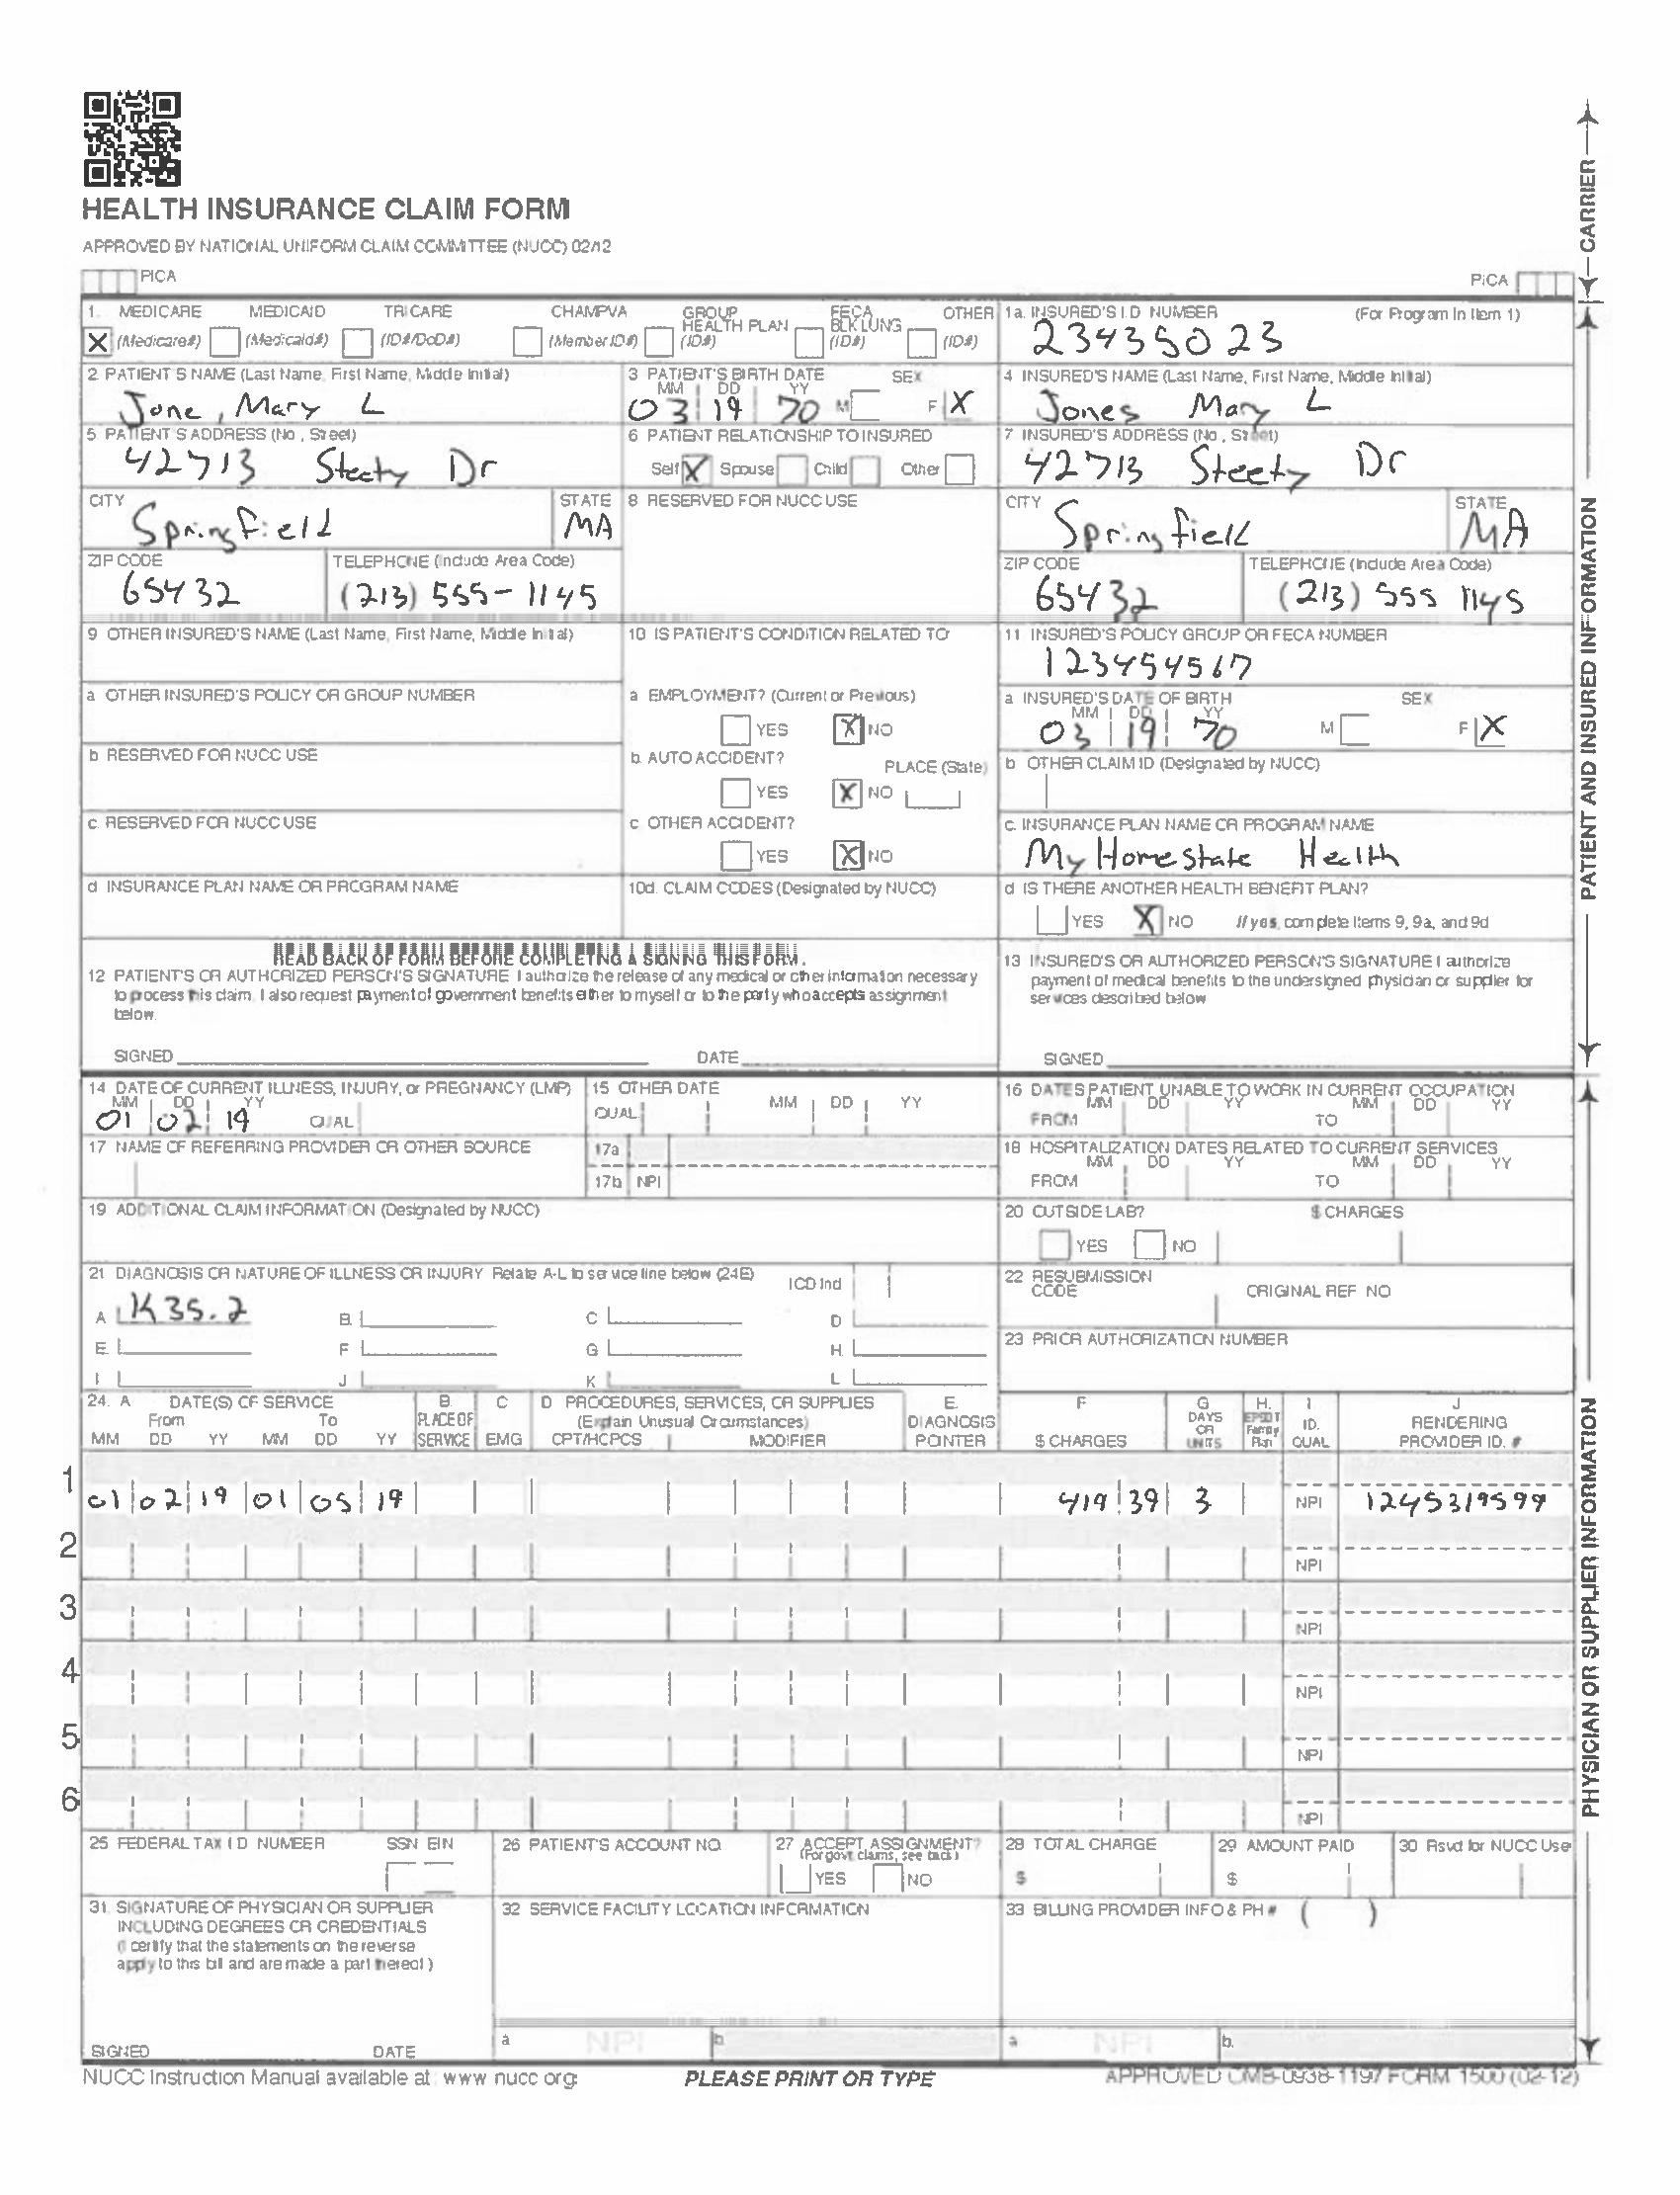 HEALTH INSURANCE CLAIM FORM
APPROVED BY NATIONAL UNIFORM CLAIM COMMITTEE (NUCC) 02/12
PICA
PICA
CARRIER
1. MEDICARE MEDICAID TRICARE CHAMPVA GROUP HEALTH PLAN FECA BLK LUNG OTHER
X (Medicare#) (Medicaid#) (ID#/DoD#) (Member ID#) (ID#) (ID#) (ID#)
1a. INSURED'S I.D NUMBER (For Program In Item 1)
23435023
2 PATIENT S NAME (Last Name, First Name, Middle Initial)
Jone, Mary L
3 PATIENT'S BIRTH DATE SEX
MM DD YY
03 19 70 M F X
4 INSURED'S NAME (Last Name, First Name, Middle Initial)
Jones Mary L
5 PATIENT S ADDRESS (No , Street)
42713 Steety Dr
6 PATIENT RELATIONSHIP TO INSURED
Self X Spouse Child Other
7 INSURED'S ADDRESS (No , Street)
42713 Steety Dr
CITY STATE
Springfield MA
8 RESERVED FOR NUCC USE
CITY STATE
Springfield MA
ZIP CODE TELEPHONE (Include Area Code)
65432 (213) 555-1145
ZIP CODE TELEPHONE (Include Area Code)
65432 (213) 555 1145
9 OTHER INSURED'S NAME (Last Name, First Name, Middle Initial)
10 IS PATIENT'S CONDITION RELATED TO
11 INSURED'S POLICY GROUP OR FECA NUMBER
123454567
a OTHER INSURED'S POLICY OR GROUP NUMBER
a EMPLOYMENT? (Current or Previous)
YES X NO
a INSURED'S DATE OF BIRTH SEX
MM DD YY
03 19 70 M F X
b RESERVED FOR NUCC USE
b. AUTO ACCIDENT? PLACE (State)
YES X NO
b OTHER CLAIM ID (Designated by NUCC)
c. RESERVED FOR NUCC USE
c OTHER ACCIDENT?
YES X NO
c. INSURANCE PLAN NAME OR PROGRAM NAME
My Homestate Health
d INSURANCE PLAN NAME OR PROGRAM NAME
10d. CLAIM CODES (Designated by NUCC)
d IS THERE ANOTHER HEALTH BENEFIT PLAN?
YES X NO If yes, complete items 9, 9a, and 9d
READ BACK OF FORM BEFORE COMPLETING & SIGNING THIS FORM.
12 PATIENT'S OR AUTHORIZED PERSON'S SIGNATURE I authorize the release of any medical or other information necessary
to process this claim. I also request payment of government benefits either to myself or to the party who accepts assignment
below.
SIGNED DATE
13 INSURED'S OR AUTHORIZED PERSON'S SIGNATURE I authorize
payment of medical benefits to the undersigned physician or supplier for
services described below
SIGNED
PATIENT AND INSURED INFORMATION
14 DATE OF CURRENT ILLNESS, INJURY, or PREGNANCY (LMP)
MM DD YY
01 02 19 QUAL
15 OTHER DATE
QUAL MM DD YY
16 DATES PATIENT UNABLE TO WORK IN CURRENT OCCUPATION
MM DD YY MM DD YY
FROM TO
17 NAME OF REFERRING PROVIDER OR OTHER SOURCE
17a
17b NPI
18 HOSPITALIZATION DATES RELATED TO CURRENT SERVICES
MM DD YY MM DD YY
FROM TO
19 ADDITIONAL CLAIM INFORMATION (Designated by NUCC)
20 OUTSIDE LAB? $ CHARGES
YES NO
21 DIAGNOSIS OR NATURE OF ILLNESS OR INJURY Relate A-L to service line below (24E) ICD Ind
A K35.2 B. C D
E. F G H.
I J K L
22 RESUBMISSION CODE ORIGINAL REF NO
23 PRIOR AUTHORIZATION NUMBER
24. A DATE(S) OF SERVICE B. C D PROCEDURES, SERVICES, OR SUPPLIES E. F G H. I J
From To PLACE OF (Explain Unusual Circumstances) DIAGNOSIS DAYS OR EPSDT Family ID. RENDERING
MM DD YY MM DD YY SERVICE EMG CPT/HCPCS MODIFIER POINTER $ CHARGES UNITS Plan QUAL PROVIDER ID. #
1 01 02 19 01 05 19 419 39 3 NPI 1245319599
2 NPI
3 NPI
4 NPI
5 NPI
6 NPI
25 FEDERAL TAX I D NUMBER SSN EIN
26 PATIENT'S ACCOUNT NO.
27 ACCEPT ASSIGNMENT?
(For govt. claims, see back)
YES NO
28 TOTAL CHARGE
$
29 AMOUNT PAID
$
30 Rsvd for NUCC Use
31. SIGNATURE OF PHYSICIAN OR SUPPLIER
INCLUDING DEGREES OR CREDENTIALS
(I certify that the statements on the reverse
apply to this bill and are made a part thereof.)
SIGNED DATE
32 SERVICE FACILITY LOCATION INFORMATION
a NPI b.
33 BILLING PROVIDER INFO & PH # ( )
a NPI b.
PHYSICIAN OR SUPPLIER INFORMATION
NUCC Instruction Manual available at: www nucc org
PLEASE PRINT OR TYPE
APPROVED OMB-0938-1197 FORM 1500 (02-12)